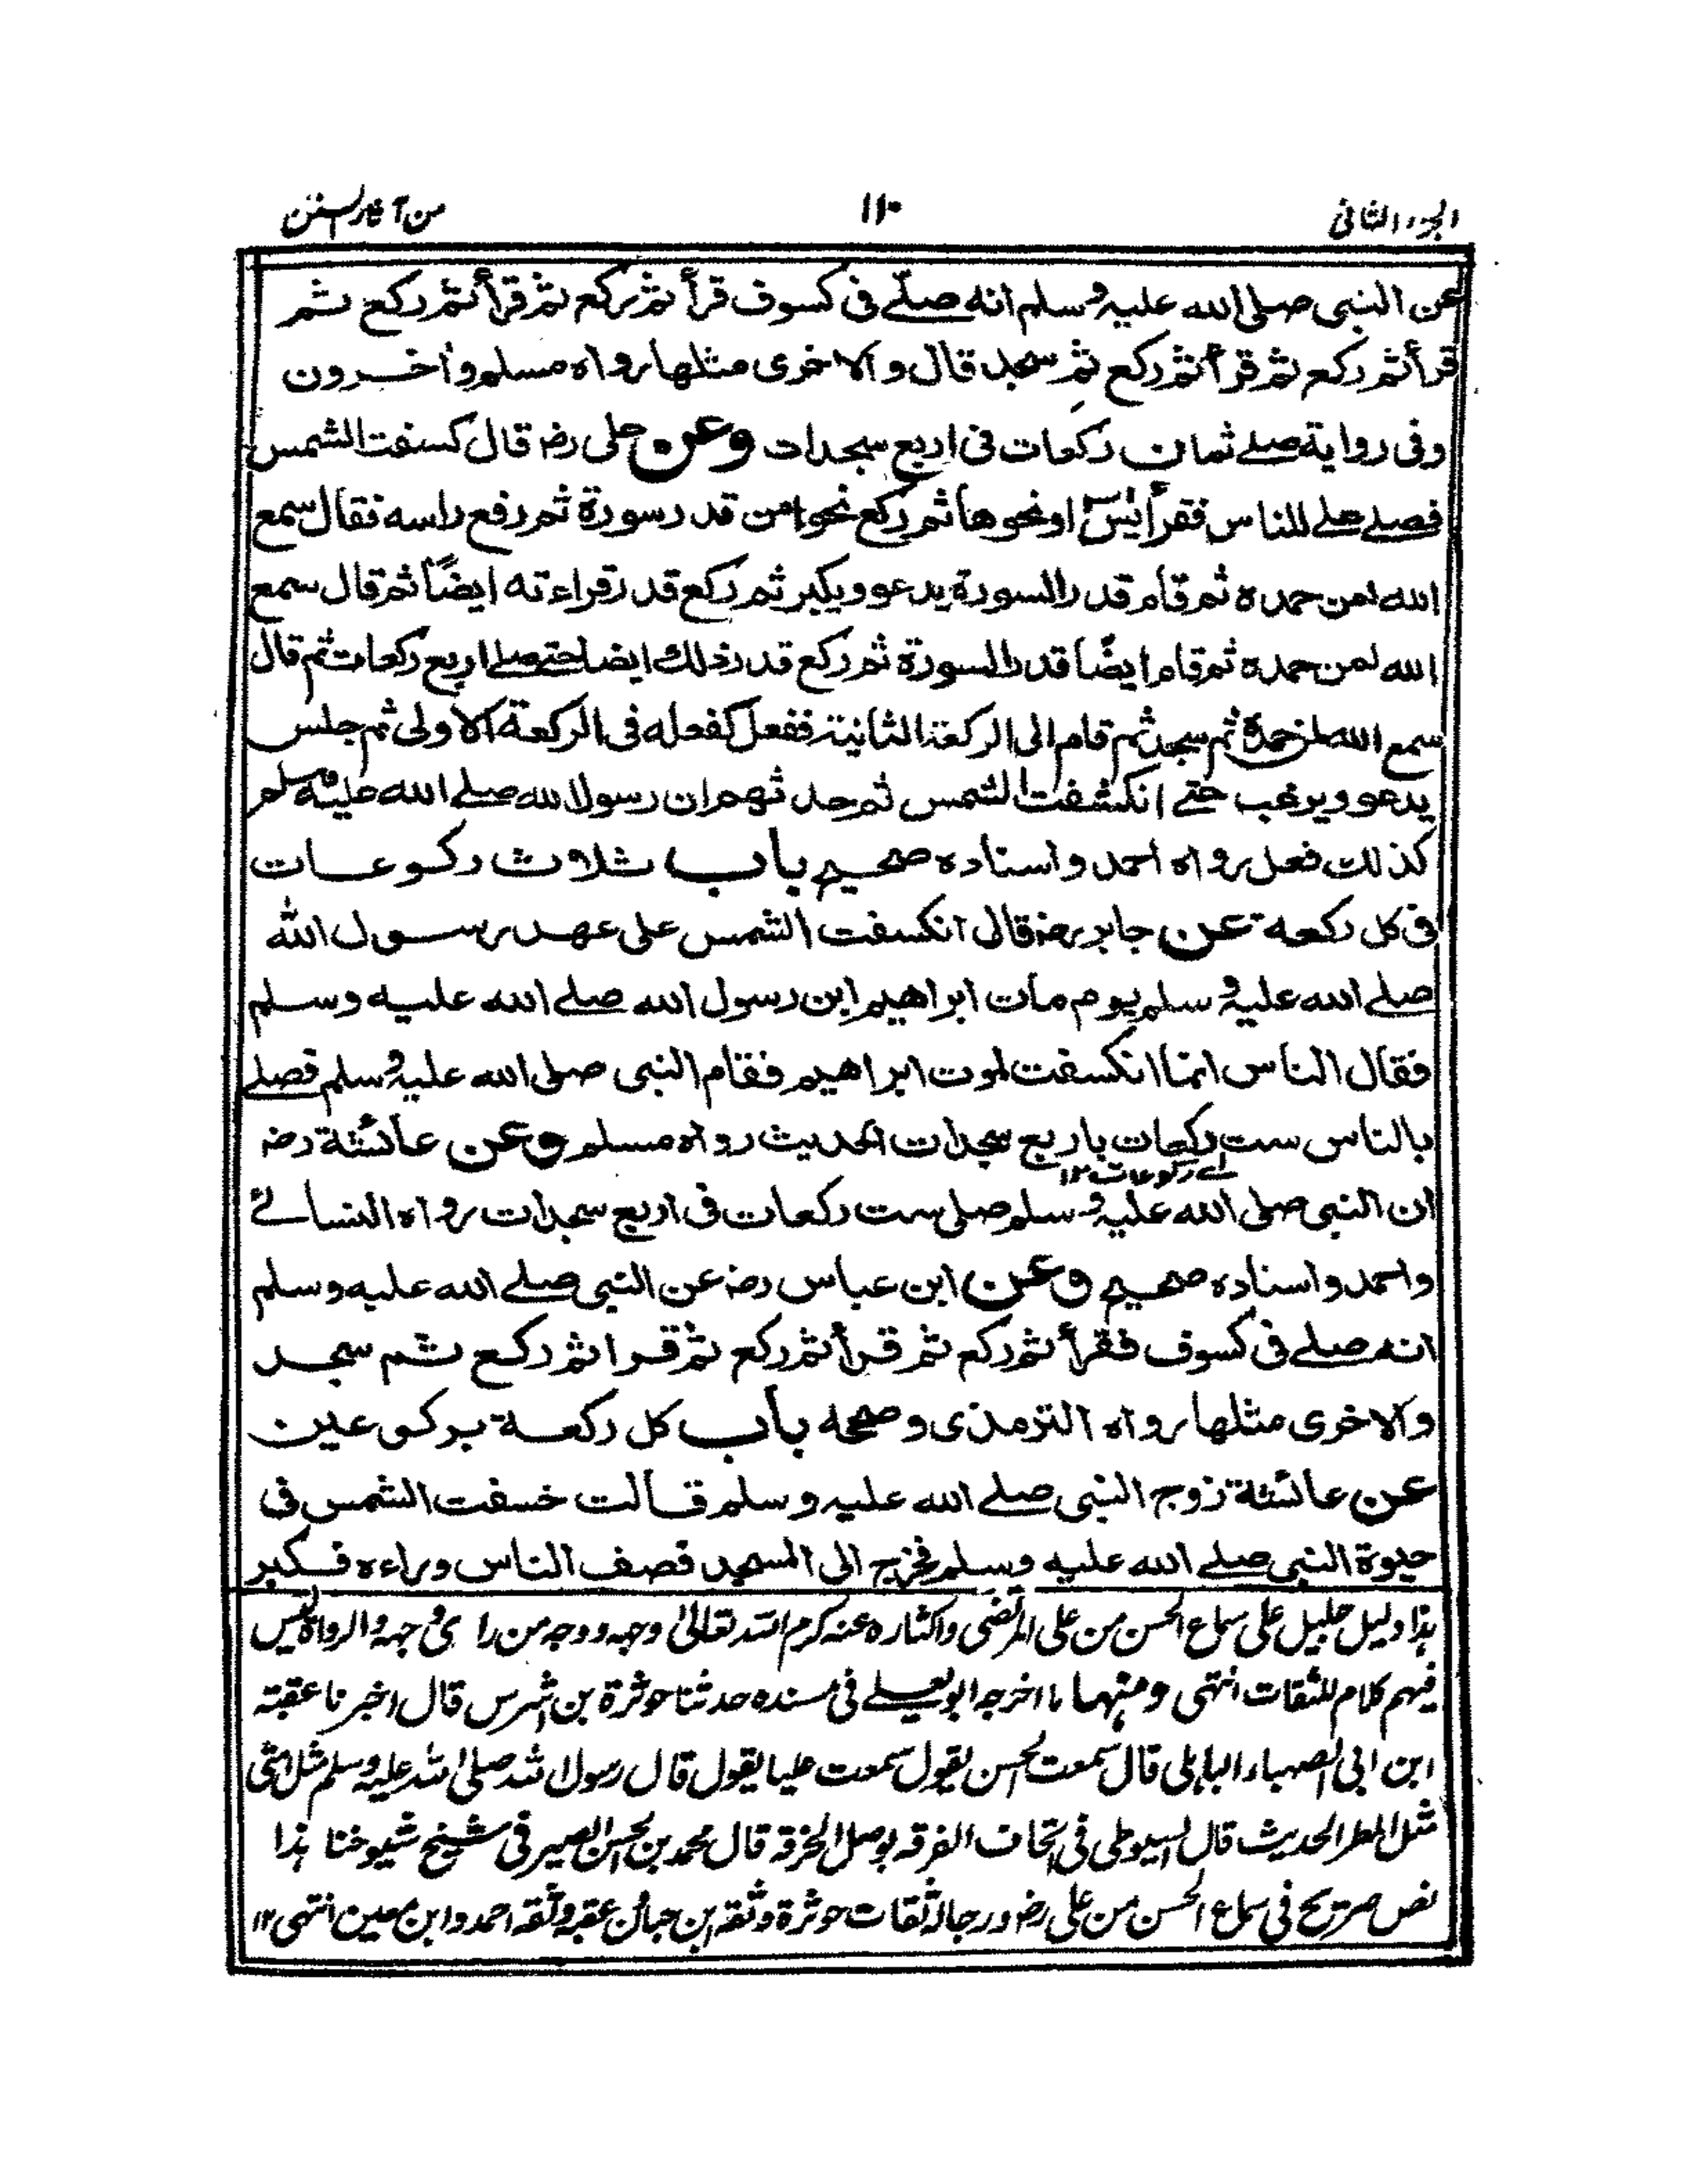 الجزء الثانی ۱۱۰ من آثار السنن
عن النبی صلی الله علیه وسلم انه صلّے فی کسوف قرأ ثم رکع ثم قرأ ثم رکع ثم
قرأ ثم رکع ثم قرأ ثم رکع ثم سجد قال والاخری مثلها رواه مسلم وأخرون
وفی روایة صلے ثمان رکعات فی اربع سجدات وعن علی رضہ قال کسفت الشمس
فصلے علے للناس فقرأ یٰسٓ او نحوها ثم رکع نحوا من قدر سورة ثم رفع راسه فقال سمع
الله لمن حمده ثم قام قدر السورة یدعو ویکبر ثم رکع قدر قراءته ایضًا ثم قال سمع
الله لمن حمده ثم قام ایضًا قدر السورة ثم رکع قدر ذلك ایضا حتے صلے اربع رکعات ثم قال
سمع الله لمن حمدة ثم سجد ثم قام الی الرکعة الثانیة ففعل کفعله فی الرکعة الاولی ثم جلس
یدعو ویرغب حتے انکشفت الشمس ثم حدثهم ان رسول الله صلے الله علیه وسلم
کذلك فعل رواه احمد واسناده صحیح باب ثلاث رکوعات
فی کل رکعة عن جابر رضہ قال انکسفت الشمس علی عهد رسول الله
صلے الله علیه وسلم یوم مات ابراهیم ابن رسول الله صلے الله علیه وسلم
فقال الناس انما انکسفت لموت ابراهیم فقام النبی صلی الله علیه وسلم فصلے
بالناس ست رکعات باربع سجدات الحدیث رواه مسلم وعن عائشة رضہ
اے رکوعات ۱۲
ان النبی صلی الله علیه وسلم صلی ست رکعات فی اربع سجدات رواه النسائے
واحمد واسناده صحیح وعن ابن عباس رضہ عن النبی صلے الله علیه وسلم
انه صلے فی کسوف فقرأ ثم رکع ثم قرأ ثم رکع ثم قرا ثم رکع ثم سجد
والاخری مثلها رواه الترمذی وصححه باب کل رکعة برکوعین
عن عائشة زوج النبی صلے الله علیه وسلم قالت خسفت الشمس فی
حیوة النبی صلے الله علیه وسلم فخرج الی المسجد فصف الناس وراءه فکبر
ہذا دلیل جلیل علی سماع الحسن من علی المرتضی واکثاره عنہ کرم اللہ تعالیٰ وجہہ ووجہ من رای وجہہ والرواة لیس
فیہم کلام للثقات انتہی ومنہا ما اخرجہ ابو یعلے فی مسندہ حدثنا حوثرة بن اشرس قال اخبرنا عقبتہ
ابن ابی الصہباء الباہلی قال سمعت الحسن یقول سمعت علیا یقول قال رسول اللہ صلی اللہ علیہ وسلم مثل امتی
مثل المطر الحدیث قال السیوطی فی اتحاف الفرقہ بوصل الخرقہ قال محمد بن الحسن الصیرفی شیخ شیوخنا ہذا
نص صریح فی سماع الحسن من علی رضہ ورجالہ ثقات حوثرة وثقہ ابن حبان وعقبہ وثقہ احمد وابن معین انتہی ۱۲